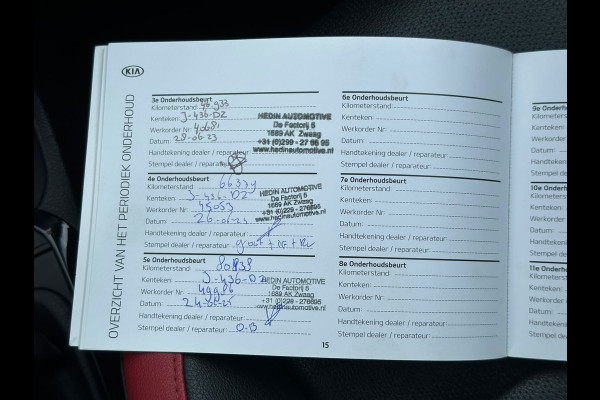 KIA
OVERZICHT VAN HET PERIODIEK ONDERHOUD
3e Onderhoudsbeurt
Kilometerstand: 46933
Kenteken: J-436-DZ
Werkorder Nr: 40681
Datum: 28-06-23
Handtekening dealer / reparateur:
Stempel dealer / reparateur:
HEDIN AUTOMOTIVE
De Factorij 5
1689 AK Zwaag
+31 (0)229 - 27 66 95
www.hedinautomotive.nl
4e Onderhoudsbeurt
Kilometerstand
Kenteken: J-436-DZ
Werkorder Nr:
Datum
Handtekening dealer / reparateur:
Stempel dealer / reparateur:
HEDIN AUTOMOTIVE
De Factorij 5
1689 AK Zwaag
+31 (0)229 - 276695
www.hedinautomotive.nl
5e Onderhoudsbeurt
Kilometerstand 80838
Kenteken: J-436-DZ
Werkorder Nr:
Datum
Handtekening dealer / reparateur:
Stempel dealer / reparateur: O-B
HEDIN AUTOMOTIVE
De Factorij 5
1689 AK Zwaag
+31 (0)229 - 276695
www.hedinautomotive.nl
6e Onderhoudsbeurt
Kilometerstand:
Kenteken:
Werkorder Nr:
Datum:
Handtekening dealer / reparateur:
Stempel dealer / reparateur:
7e Onderhoudsbeurt
Kilometerstand:
Kenteken:
Werkorder Nr:
Datum:
Handtekening dealer / reparateur:
Stempel dealer / reparateur:
8e Onderhoudsbeurt
Kilometerstand:
Kenteken:
Werkorder Nr:
Datum:
Handtekening dealer / reparateur:
Stempel dealer / reparateur:
15
9e
Kilometerst
Kenteken:
Werkorder
Datum:
Handteken
Stempel de
10e
Kilometers
Kenteken:
Werkorder
Datum:
Handteken
Stempel de
11e
Kilometers
Kenteken:
Werkorder
Datum:
Handteken
Stempel de